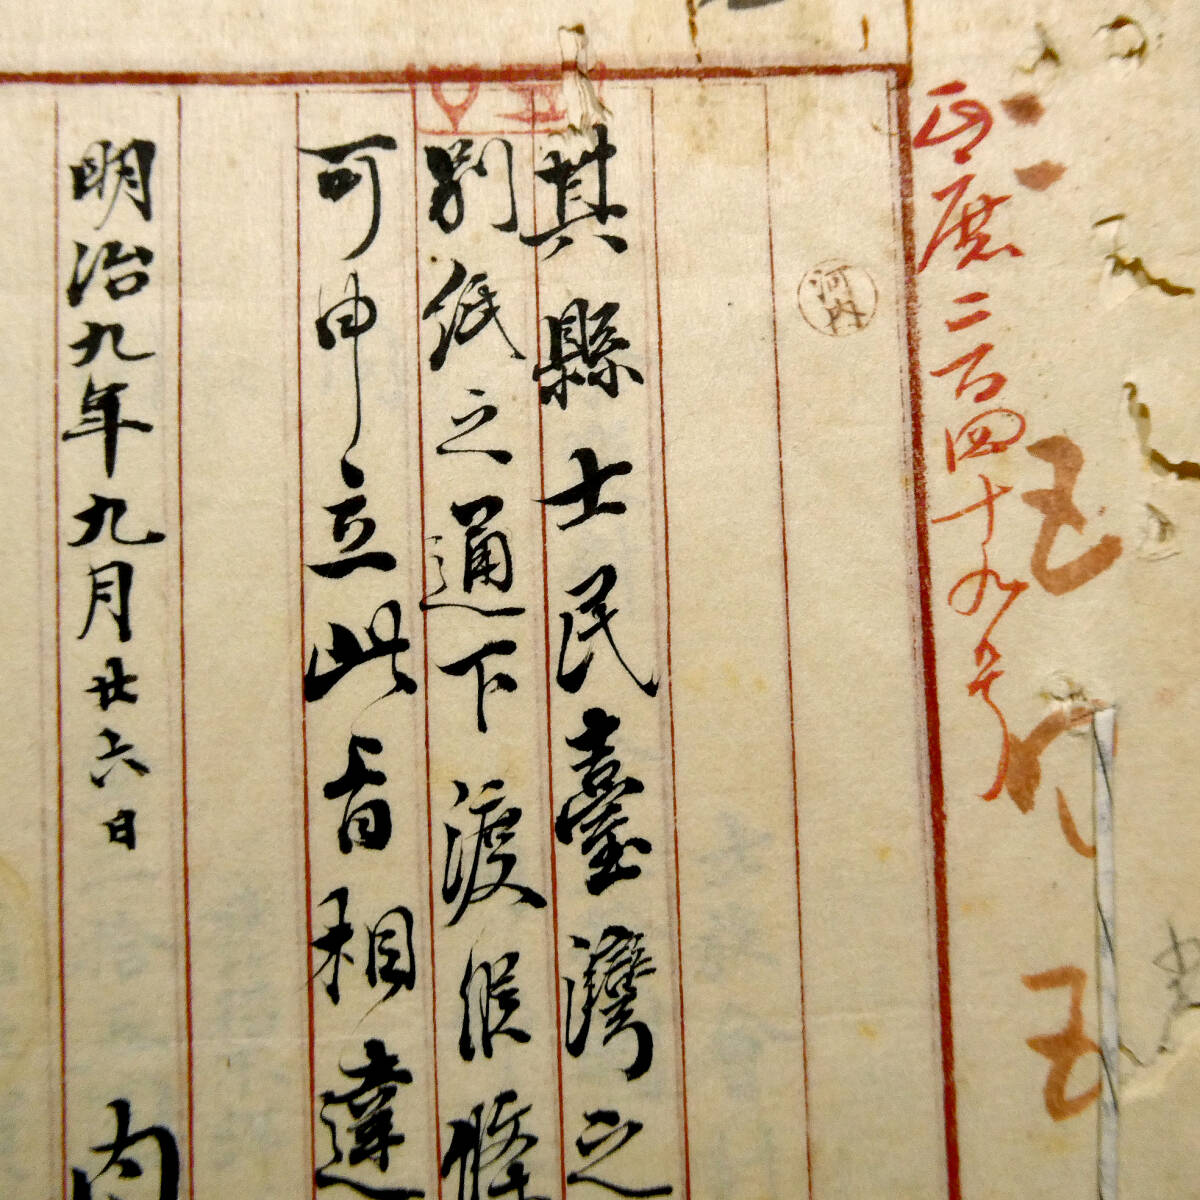 正庶二百四十九号
五
五
河内
其縣士民臺灣之
別紙之通下渡候條
可申立此旨相達
明治九年九月廿六日
内